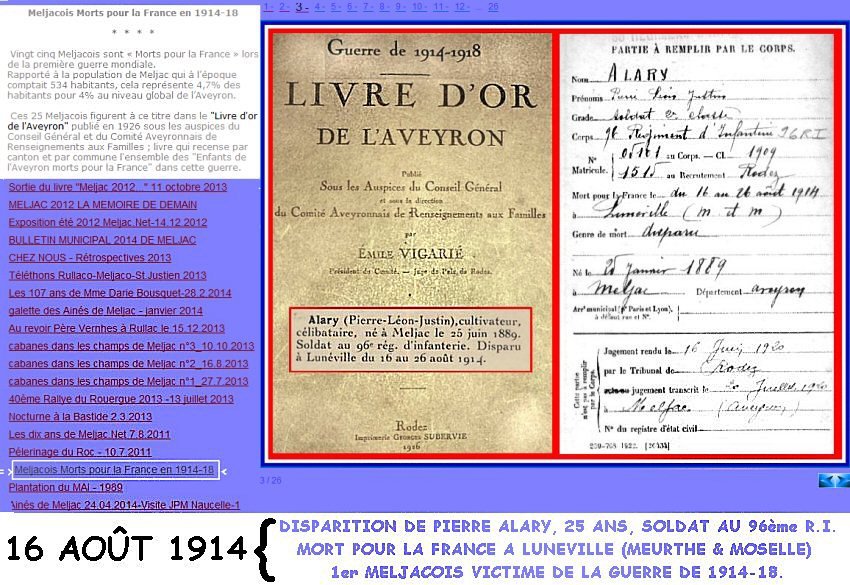 Meljacois Morts pour la France en 1914-18
* * * *
Vingt cinq Meljacois sont « Morts pour la France » lors
de la première guerre mondiale.
Rapporté à la population de Meljac qui à l'époque
comptait 534 habitants, cela représente 4,7% des
habitants pour 4% au niveau global de l'Aveyron.
Ces 25 Meljacois figurent à ce titre dans le "Livre d'or
de l'Aveyron" publié en 1926 sous les auspices du
Conseil Général et du Comité Aveyronnais de
Renseignements aux Familles ; livre qui recense par
canton et par commune l'ensemble des "Enfants de
l'Aveyron morts pour la France" dans cette guerre.
Sortie du livre "Meljac 2012..." 11 octobre 2013
MELJAC 2012 LA MEMOIRE DE DEMAIN
Exposition été 2012 Meljac.Net-14.12.2012
BULLETIN MUNICIPAL 2014 DE MELJAC
CHEZ NOUS - Rétrospectives 2013
Téléthons Rullaco-Meljaco-St Justien 2013
Les 107 ans de Mme Darie Bousquet-28.2.2014
galette des Ainés de Meljac - janvier 2014
Au revoir Père Vernhes à Rullac le 15.12.2013
cabanes dans les champs de Meljac n°3_10.10.2013
cabanes dans les champs de Meljac n°2_16.8.2013
cabanes dans les champs de Meljac n°1_27.7.2013
40ème Rallye du Rouergue 2013 -13 juillet 2013
Nocturne à la Bastide 2.3.2013
Les dix ans de Meljac Net 7.8.2011
Pélerinage du Roc - 10.7.2011
> Meljacois Morts pour la France en 1914-18 <
Plantation du MAI - 1989
Ainés de Meljac 24.04.2014-Visite JPM Naucelle-1
1 - 2 - 3 - 4 - 5 - 6 - 7 - 8 - 9 - 10 - 11 - 12 - ... 26
Guerre de 1914-1918
LIVRE D'OR
DE L'AVEYRON
Publié
Sous les Auspices du Conseil Général
et sous la direction
du Comité Aveyronnais de Renseignements aux Familles
par
ÉMILE VIGARIÉ
Président du Comité. — Juge de Paix, de Rodez.
Alary (Pierre-Léon-Justin), cultivateur,
célibataire, né à Meljac le 25 juin 1889.
Soldat au 96e rég. d'infanterie. Disparu
à Lunéville du 16 au 26 août 1914.
Rodez
Imprimerie GEORGES SUBERVIE
1926
PARTIE À REMPLIR PAR LE CORPS.
Nom ALARY
Prénoms Pierre Léon Justin
Grade Soldat 2e classe
Corps 96 Régiment d'Infanterie 96 R.I
N° au Corps. — Cl. 1909
Matricule. 1515 au Recrutement Rodez
Mort pour la France le du 16 au 26 août 1914
à Lunéville (M et M)
Genre de mort disparu
Né le 25 Janvier 1889
à Meljac Département Aveyron
Arr' municipal (pr Paris et Lyon),
à défaut rue et N°.
Cette partie
n'est pas à remplir
par le Corps.
Jugement rendu le 16 Juin 1920
par le Tribunal de Rodez
jugement transcrit le 20 Juillet 1920
à Meljac (Aveyron)
N° du registre d'état civil
3 / 26
16 AOÛT 1914
DISPARITION DE PIERRE ALARY, 25 ANS, SOLDAT AU 96ème R.I.
MORT POUR LA FRANCE A LUNEVILLE (MEURTHE & MOSELLE)
1er MELJACOIS VICTIME DE LA GUERRE DE 1914-18.